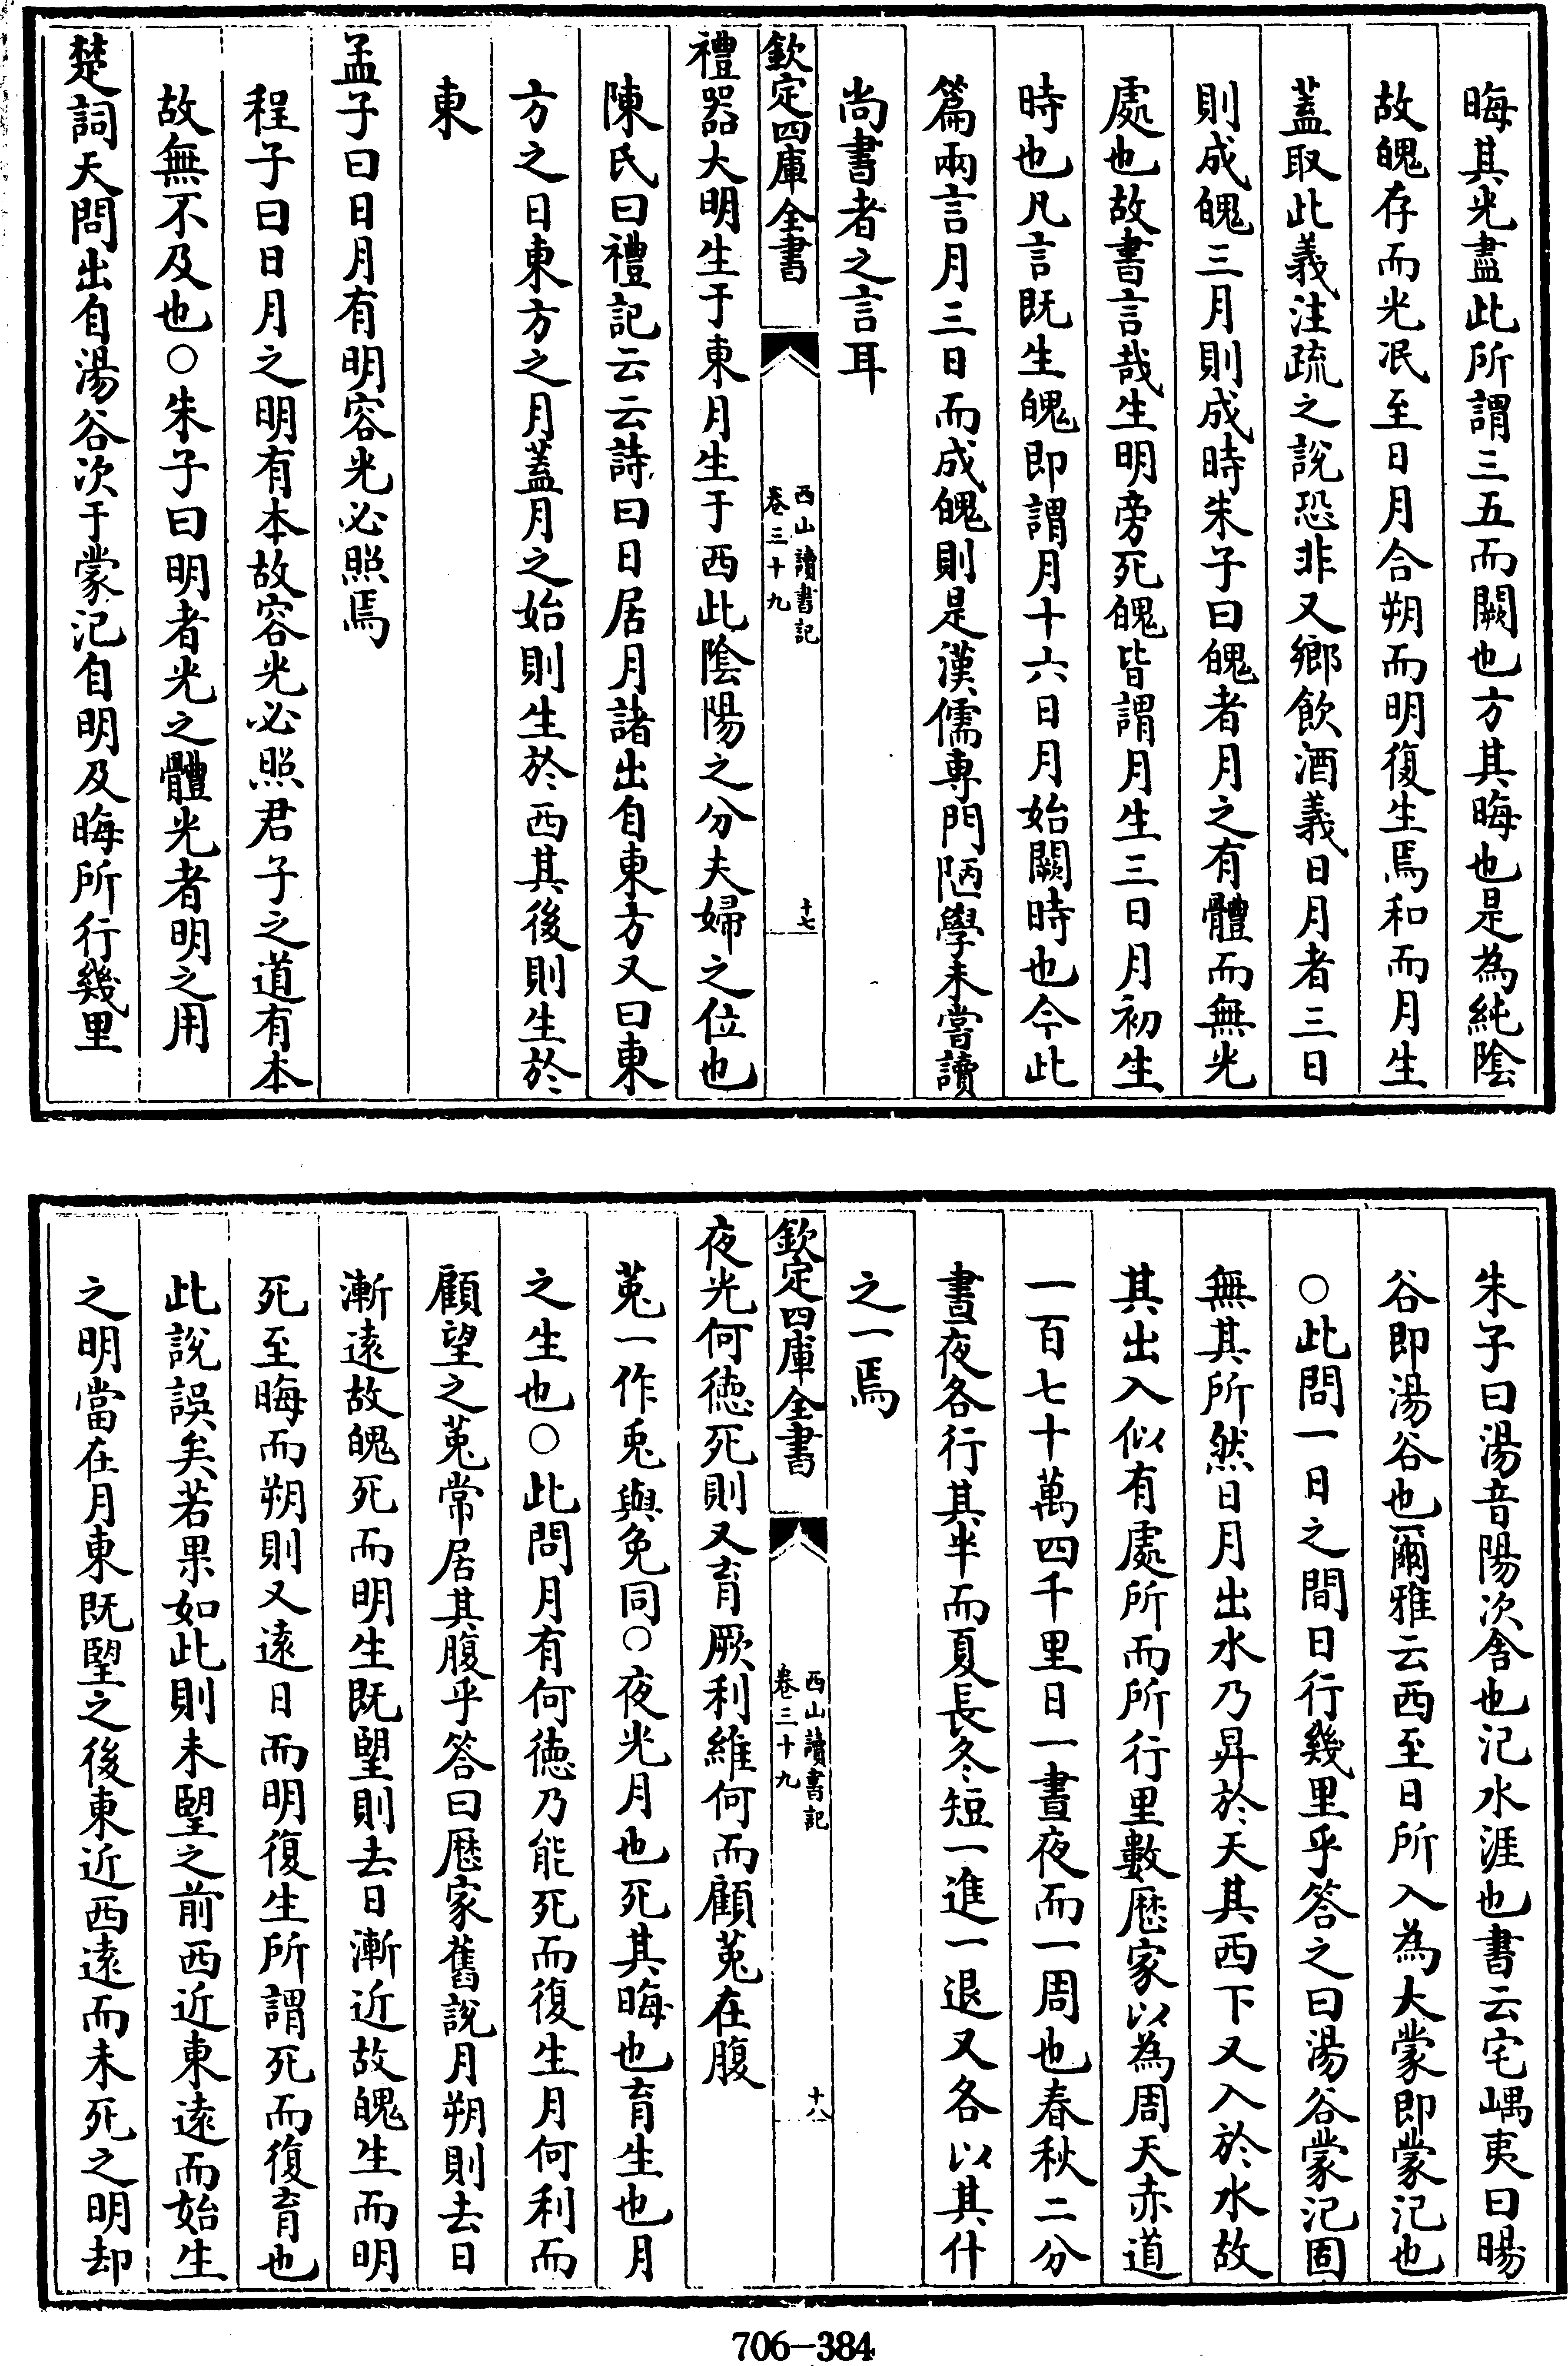 晦其光盡此所謂三五而闕也方其晦也是為純陰
故魄存而光泯至日月合朔而明復生焉和而月生
蓋取此義注疏之說恐非又鄉飲酒義日月者三日
則成魄三月則成時朱子曰魄者月之有體而無光
處也故書言哉生明旁死魄皆謂月生三日月初生
時也凡言既生魄即謂月十六日月始闕時也今此
篇兩言月三日而成魄則是漢儒專門陋學未嘗讀
尚書者之言耳
欽定四庫全書
西山讀書記
卷三十九
十七
禮器大明生于東月生于西此陰陽之分夫婦之位也
陳氏曰禮記云云詩曰日居月諸出自東方又曰東
方之日東方之月蓋月之始則生於西其後則生於
東
孟子曰日月有明容光必照焉
程子曰日月之明有本故容光必照君子之道有本
故無不及也○朱子曰明者光之體光者明之用
楚詞天問出自湯谷次于蒙汜自明及晦所行幾里
朱子曰湯音陽次舍也汜水涯也書云宅嵎夷曰暘
谷即湯谷也爾雅云西至日所入為大蒙即蒙汜也
○此問一日之間日行幾里乎答之曰湯谷蒙汜固
無其所然日月出水乃昇於天其西下又入於水故
其出入似有處所而所行里數歷家以為周天赤道
一百七十萬四千里日一晝夜而一周也春秋二分
晝夜各行其半而夏長冬短一進一退又各以其什
之一焉
欽定四庫全書
西山讀書記
卷三十九
十八
夜光何徳死則又育厥利維何而顧菟在腹
菟一作兎與兔同○夜光月也死其晦也育生也月
之生也○此問月有何徳乃能死而復生月何利而
顧望之菟常居其腹乎答曰歷家舊說月朔則去日
漸逺故魄死而明生既望則去日漸近故魄生而明
死至晦而朔則又逺日而明復生所謂死而復育也
此說誤矣若果如此則未望之前西近東逺而始生
之明當在月東既望之後東近西逺而未死之明却
706-384